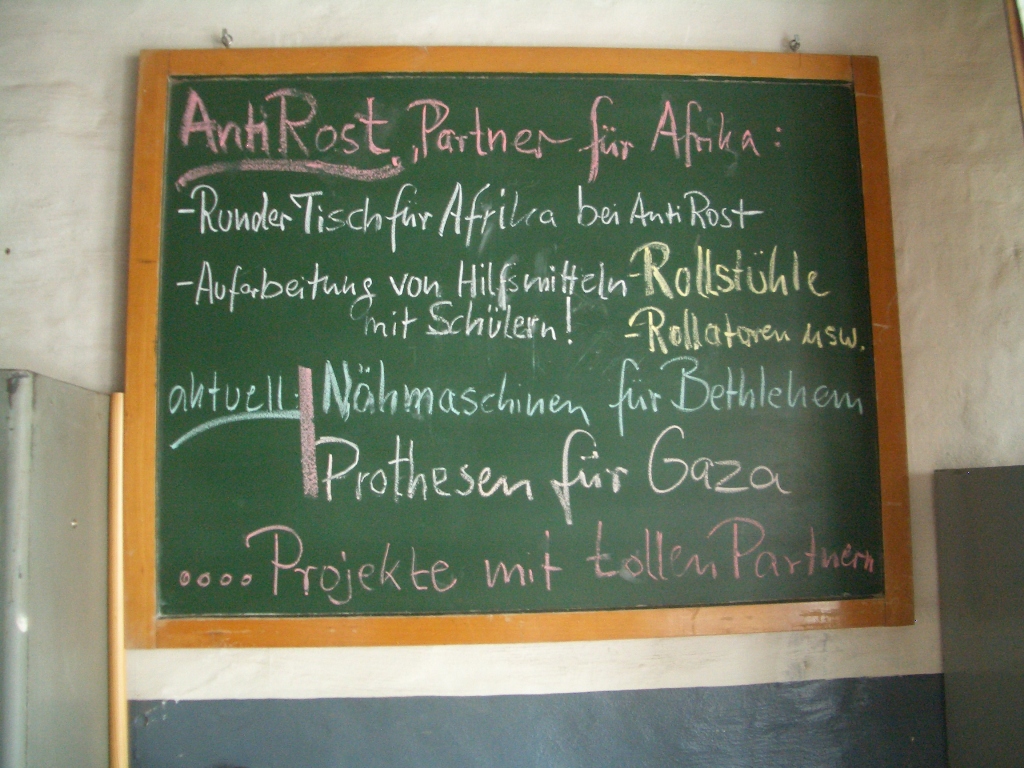 AntiRost, Partner für Afrika:
- Runder Tisch für Afrika bei AntiRost
- Aufarbeitung von Hilfsmitteln - Rollstühle
mit Schülern! - Rollatoren usw.
aktuell: Nähmaschinen für Bethlehem
Prothesen für Gaza
.... Projekte mit tollen Partnern